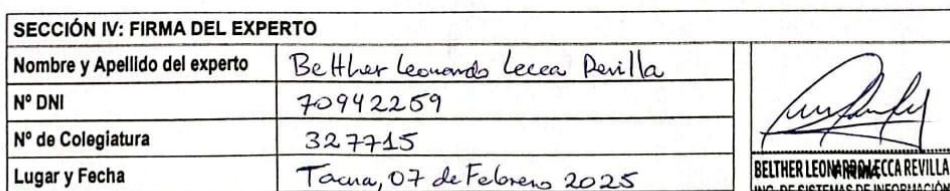 SECCIÓN IV: FIRMA DEL EXPERTO
Nombre y Apellido del experto Belther Leonardo Lecca Revilla
Nº DNI 70942259
Nº de Colegiatura 327715
Lugar y Fecha Tacna, 07 de Febrero 2025
FIRMA
BELTHER LEONARDO LECCA REVILLA
ING. DE SISTEMAS DE INFORMACIÓN